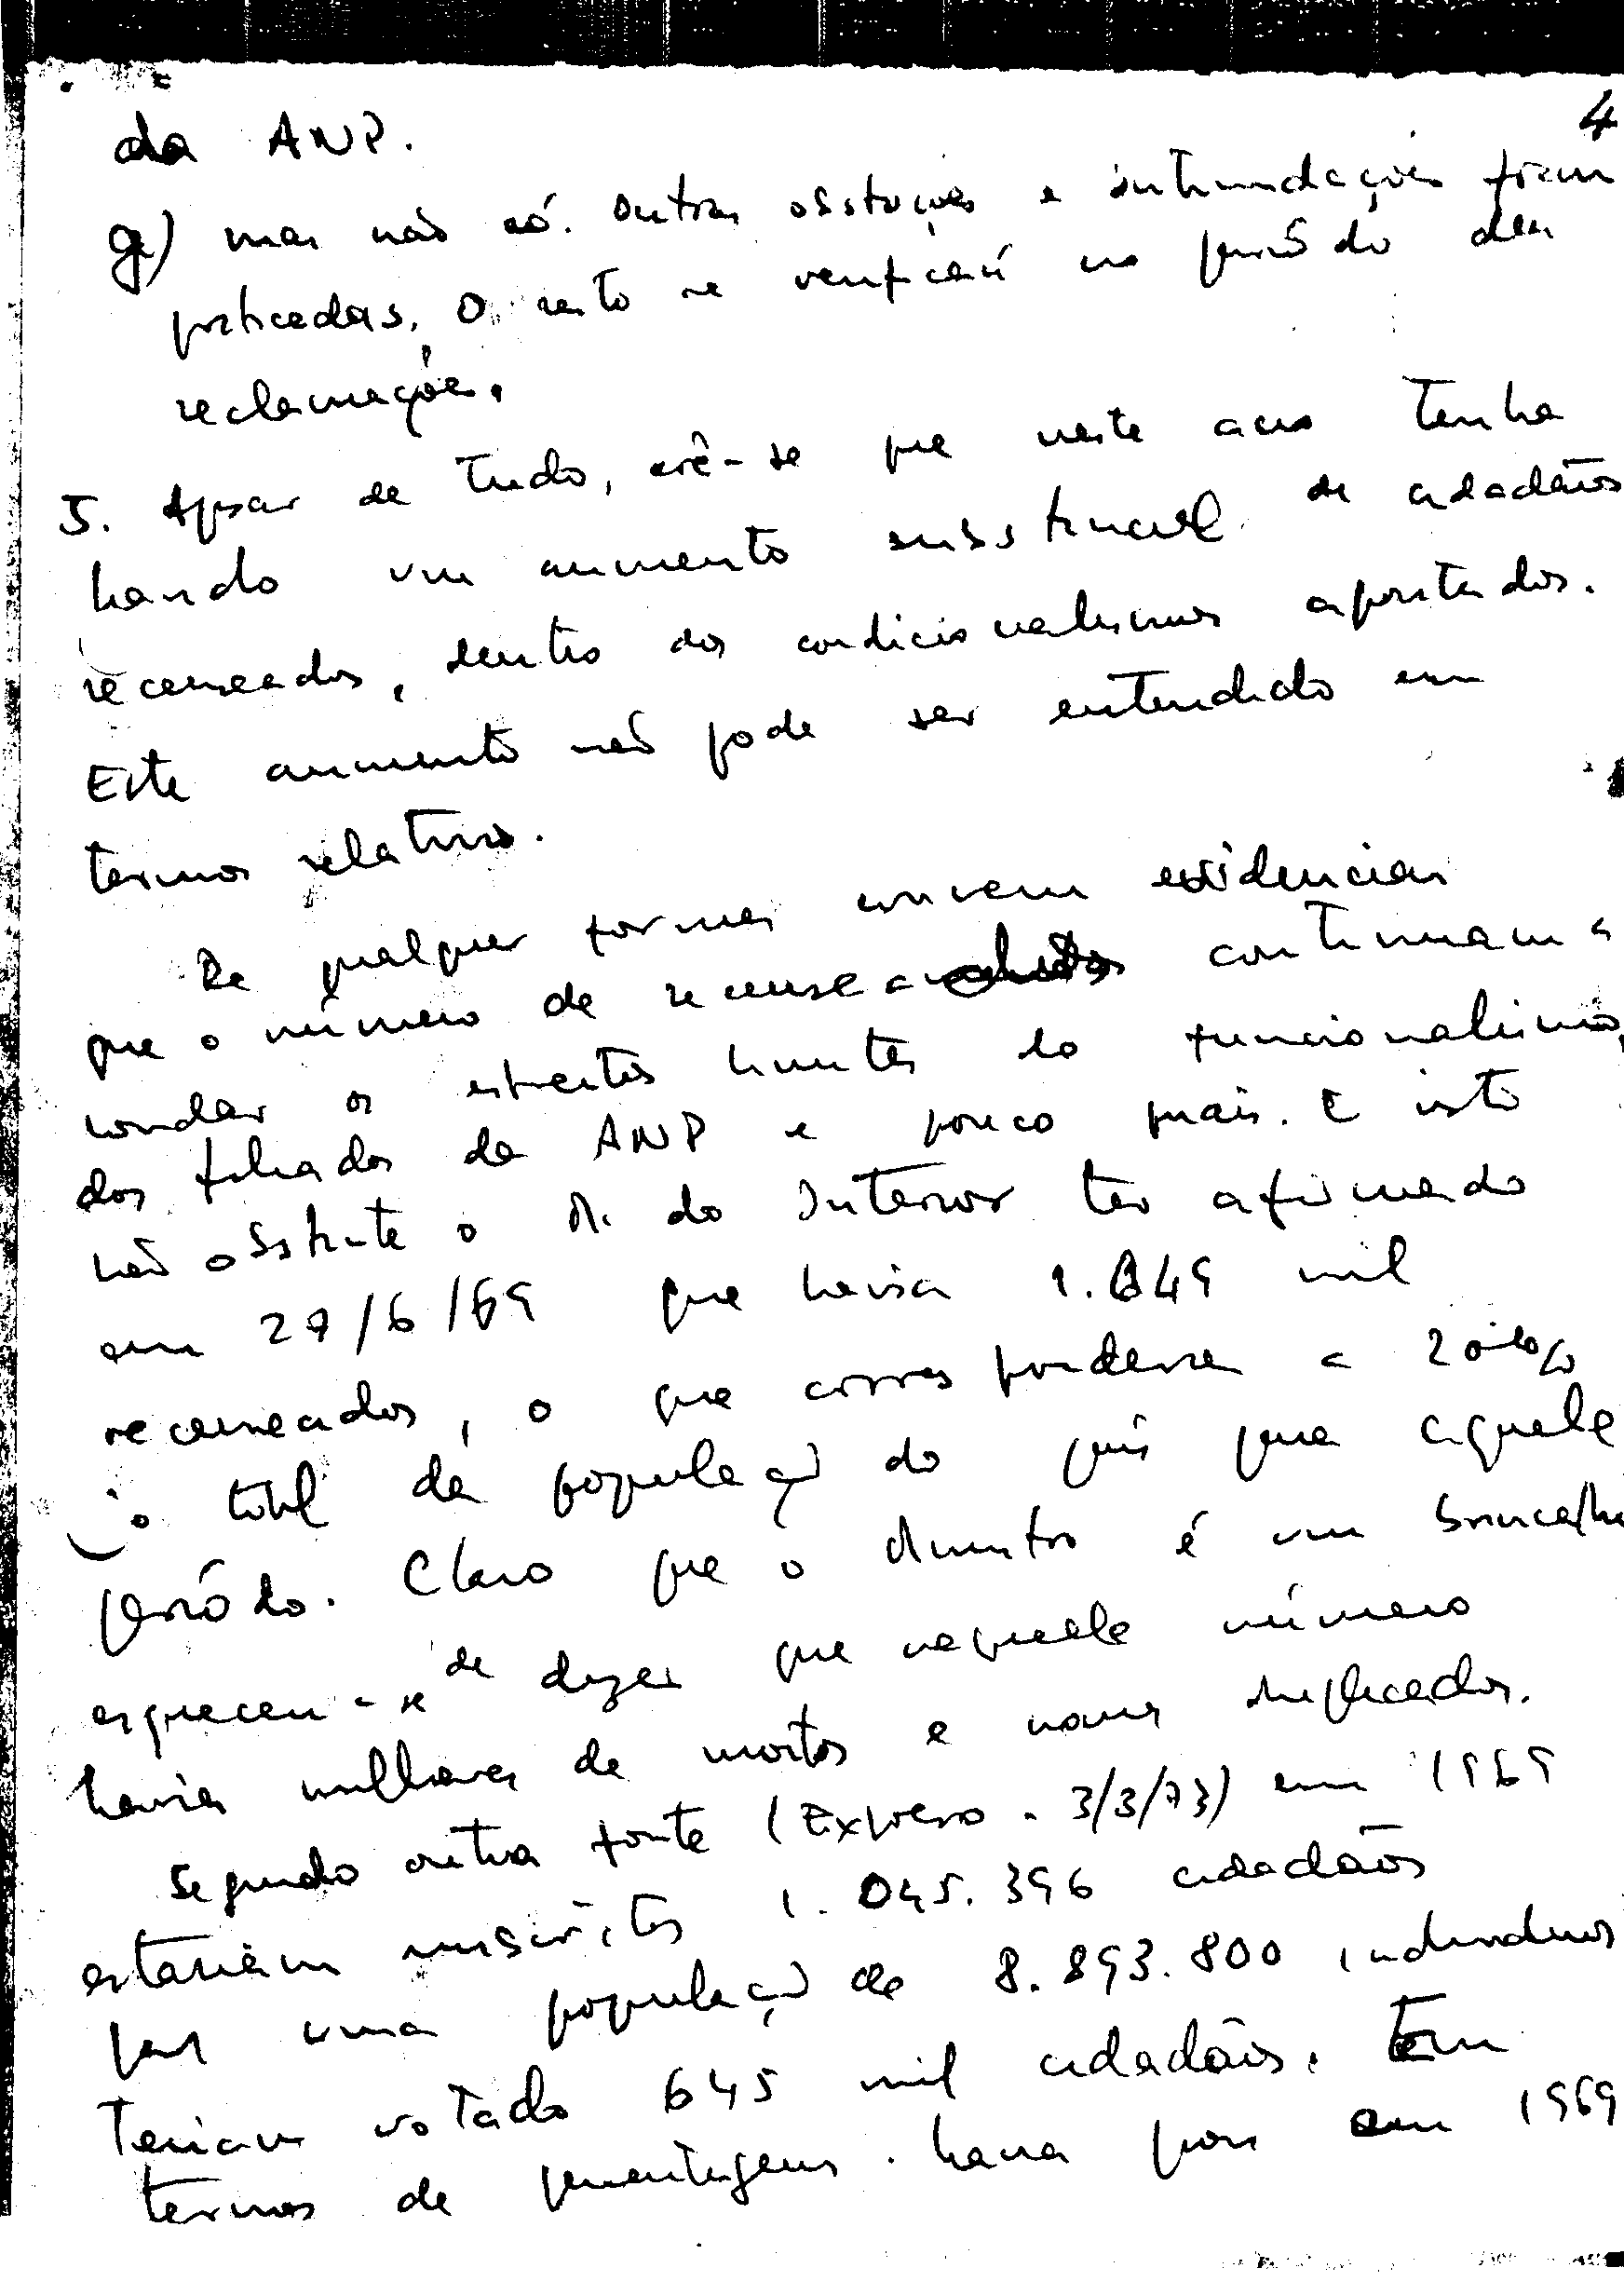 4
da ANP.
g) mas não só. Outras obstruções e intimidações foram
praticadas. O resto se verificará no período das
reclamações.
5. Apesar de tudo, crê-se que neste ano tenha
havido um aumento substancial de cidadãos
recenseados, dentro dos condicionalismos apontados.
Este aumento não pode ser entendido em
termos relativos.
De qualquer forma convem evidenciar
que o número de recenseados continuam a
rondar os estreitos limites do funcionalismo,
dos filiados da ANP e pouco mais. E isto
não obstante o M. do Interior ter afirmado
em 27/6/69 que havia 1.849 mil
recenseados, o que corresponderia a 20%
o total da população do país para aquele
período. Claro que o Ministro é um brincalhão
esqueceu-se de dizer que naquele número
havia milhares de mortos e nomes duplicados.
Segundo outra fonte (Expresso - 3/3/73) em 1969
estariam inscritos 1.045.396 cidadãos
para uma população de 8.893.800 indivíduos
Teriam votado 645 mil cidadãos. Em
termos de percentagem. havia pois em 1969